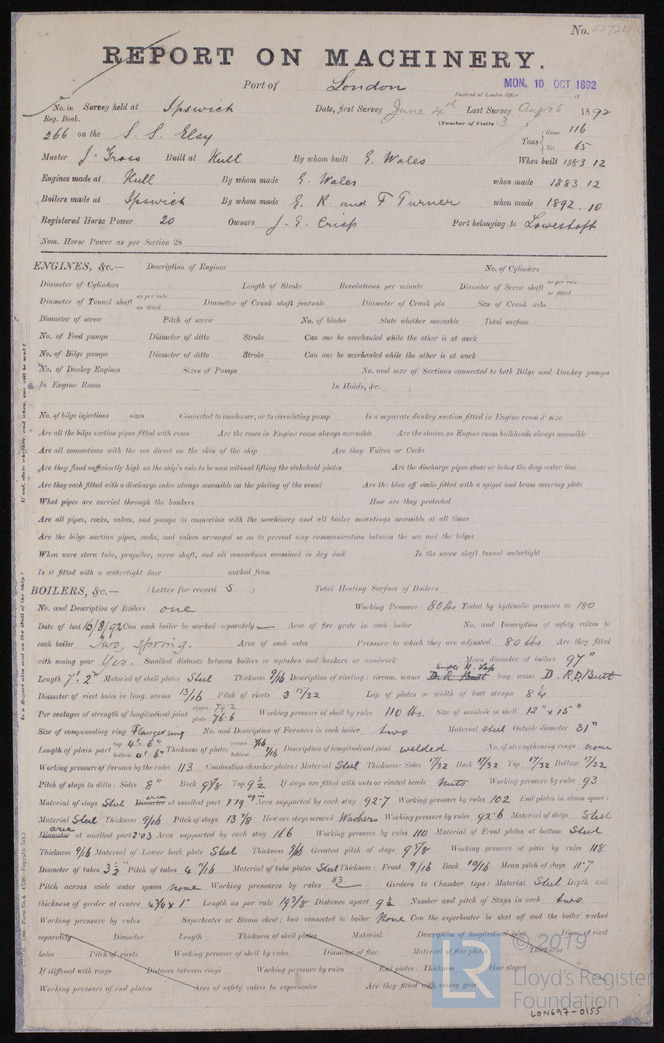 No. 
REPORT ON MACHINERY.
Port of London
Received at London Office
MON. 10 OCT 1892
No. in Survey held at Ipswich Date, first Survey June 4th Last Survey Aug 16 1892
Reg. Book. (Number of Visits 3)
266 on the S. S. Elsy Tons Gross 116 Net 65
Master J. Gross Built at Hull By whom built E. Wales When built 1883 12
Engines made at Hull By whom made E. Wales when made 1883 12
Boilers made at Ipswich By whom made E. R. and F Turner when made 1892.10
Registered Horse Power 20 Owners J. E. Crisp Port belonging to Lowestoft
Nom. Horse Power as per Section 28
ENGINES, &c.— Description of Engines No. of Cylinders
Diameter of Cylinders Length of Stroke Revolutions per minute Diameter of Screw shaft as per rule as fitted
Diameter of Tunnel shaft as per rule as fitted Diameter of Crank shaft journals Diameter of Crank pin Size of Crank webs
Diameter of screw Pitch of screw No. of blades State whether moveable Total surface
No. of Feed pumps Diameter of ditto Stroke Can one be overhauled while the other is at work
No. of Bilge pumps Diameter of ditto Stroke Can one be overhauled while the other is at work
No. of Donkey Engines Sizes of Pumps No. and size of Suctions connected to both Bilge and Donkey pumps
In Engine Room In Holds, &c.
No. of bilge injections sizes Connected to condenser, or to circulating pump Is a separate donkey suction fitted in Engine room & size
Are all the bilge suction pipes fitted with roses Are the roses in Engine room always accessible Are the sluices on Engine room bulkheads always accessible
Are all connections with the sea direct on the skin of the ship Are they Valves or Cocks
Are they fixed sufficiently high on the ship's side to be seen without lifting the stokehold plates Are the discharge pipes above or below the deep water line
Are they each fitted with a discharge valve always accessible on the plating of the vessel Are the blow off cocks fitted with a spigot and brass covering plate
What pipes are carried through the bunkers How are they protected
Are all pipes, cocks, valves, and pumps in connection with the machinery and all boiler mountings accessible at all times
Are the bilge suction pipes, cocks, and valves arranged so as to prevent any communication between the sea and the bilges
When were stern tube, propeller, screw shaft, and all connections examined in dry dock Is the screw shaft tunnel watertight
Is it fitted with a watertight door worked from
BOILERS, &c.— (Letter for record S) Total Heating Surface of Boilers
No. and Description of Boilers one Working Pressure 80 lbs Tested by hydraulic pressure to 180
Date of test 16/8/92 Can each boiler be worked separately — Area of fire grate in each boiler No. and Description of safety valves to
each boiler two, Spring. Area of each valve Pressure to which they are adjusted 80 lbs Are they fitted
with easing gear Yes. Smallest distance between boilers or uptakes and bunkers or woodwork Mean diameter of boilers 97"
Length 7'. 2" Material of shell plates Steel Thickness 9/16 Description of riveting: circum. seams D. R. Butt Single R. Lap long. seams D. R. D. Butt
Diameter of rivet holes in long. seams 13/16 Pitch of rivets 3 15/32 Lap of plates or width of butt straps 8¼
Per centages of strength of longitudinal joint rivets 79.2 plate 76.6 Working pressure of shell by rules 110 lbs. Size of manhole in shell 12" x 15"
Size of compensating ring Flanged ring No. and Description of Furnaces in each boiler two Material Steel Outside diameter 31"
Length of plain part top 4'.6" bottom 4'.6" Thickness of plates crown 7/16 bottom 7/16 Description of longitudinal joint welded No. of strengthening rings none
Working pressure of furnace by the rules 113 Combustion chamber plates: Material Steel Thickness: Sides 17/32 Back 17/32 Top 17/32 Bottom 17/32
Pitch of stays to ditto: Sides 8" Back 9⅞ Top 9½ If stays are fitted with nuts or riveted heads Nuts Working pressure by rules 93
Material of stays Steel Diameter area at smallest part 1.79 Area supported by each stay 92.7 Working pressure by rules 102 End plates in steam space:
Material Steel Thickness 9/16 Pitch of stays 13⅞ How are stays secured Washers Working pressure by rules 92.6 Material of stays Steel
Diameter area at smallest part 2.03 Area supported by each stay 166 Working pressure by rules 110 Material of Front plates at bottom Steel
Thickness 9/16 Material of Lower back plate Steel Thickness 9/16 Greatest pitch of stays 9⅞ Working pressure of plate by rules 118
Diameter of tubes 3½ Pitch of tubes 4 11/16 Material of tube plates Steel Thickness: Front 9/16 Back 10/16 Mean pitch of stays 11.7
Pitch across wide water spaces None Working pressures by rules 83 Girders to Chamber tops: Material Steel Depth and
thickness of girder at centre 4¾ x 1" Length as per rule 19⅜ Distance apart 9½ Number and pitch of Stays in each two
Working pressure by rules Superheater or Steam chest; how connected to boiler None Can the superheater be shut off and the boiler worked
separately Diameter Length Thickness of shell plates Material Description of longitudinal joint Diam. of rivet
holes Pitch of rivets Working pressure of shell by rules Diameter of flue Material of flue plates Thickness
If stiffened with rings Distance between rings Working pressure by rules End plates: Thickness How stayed
Working pressure of end plates Area of safety valves to superheater Are they fitted with easing gear
© 2019
LR Lloyd's Register
Foundation
LON697-0155